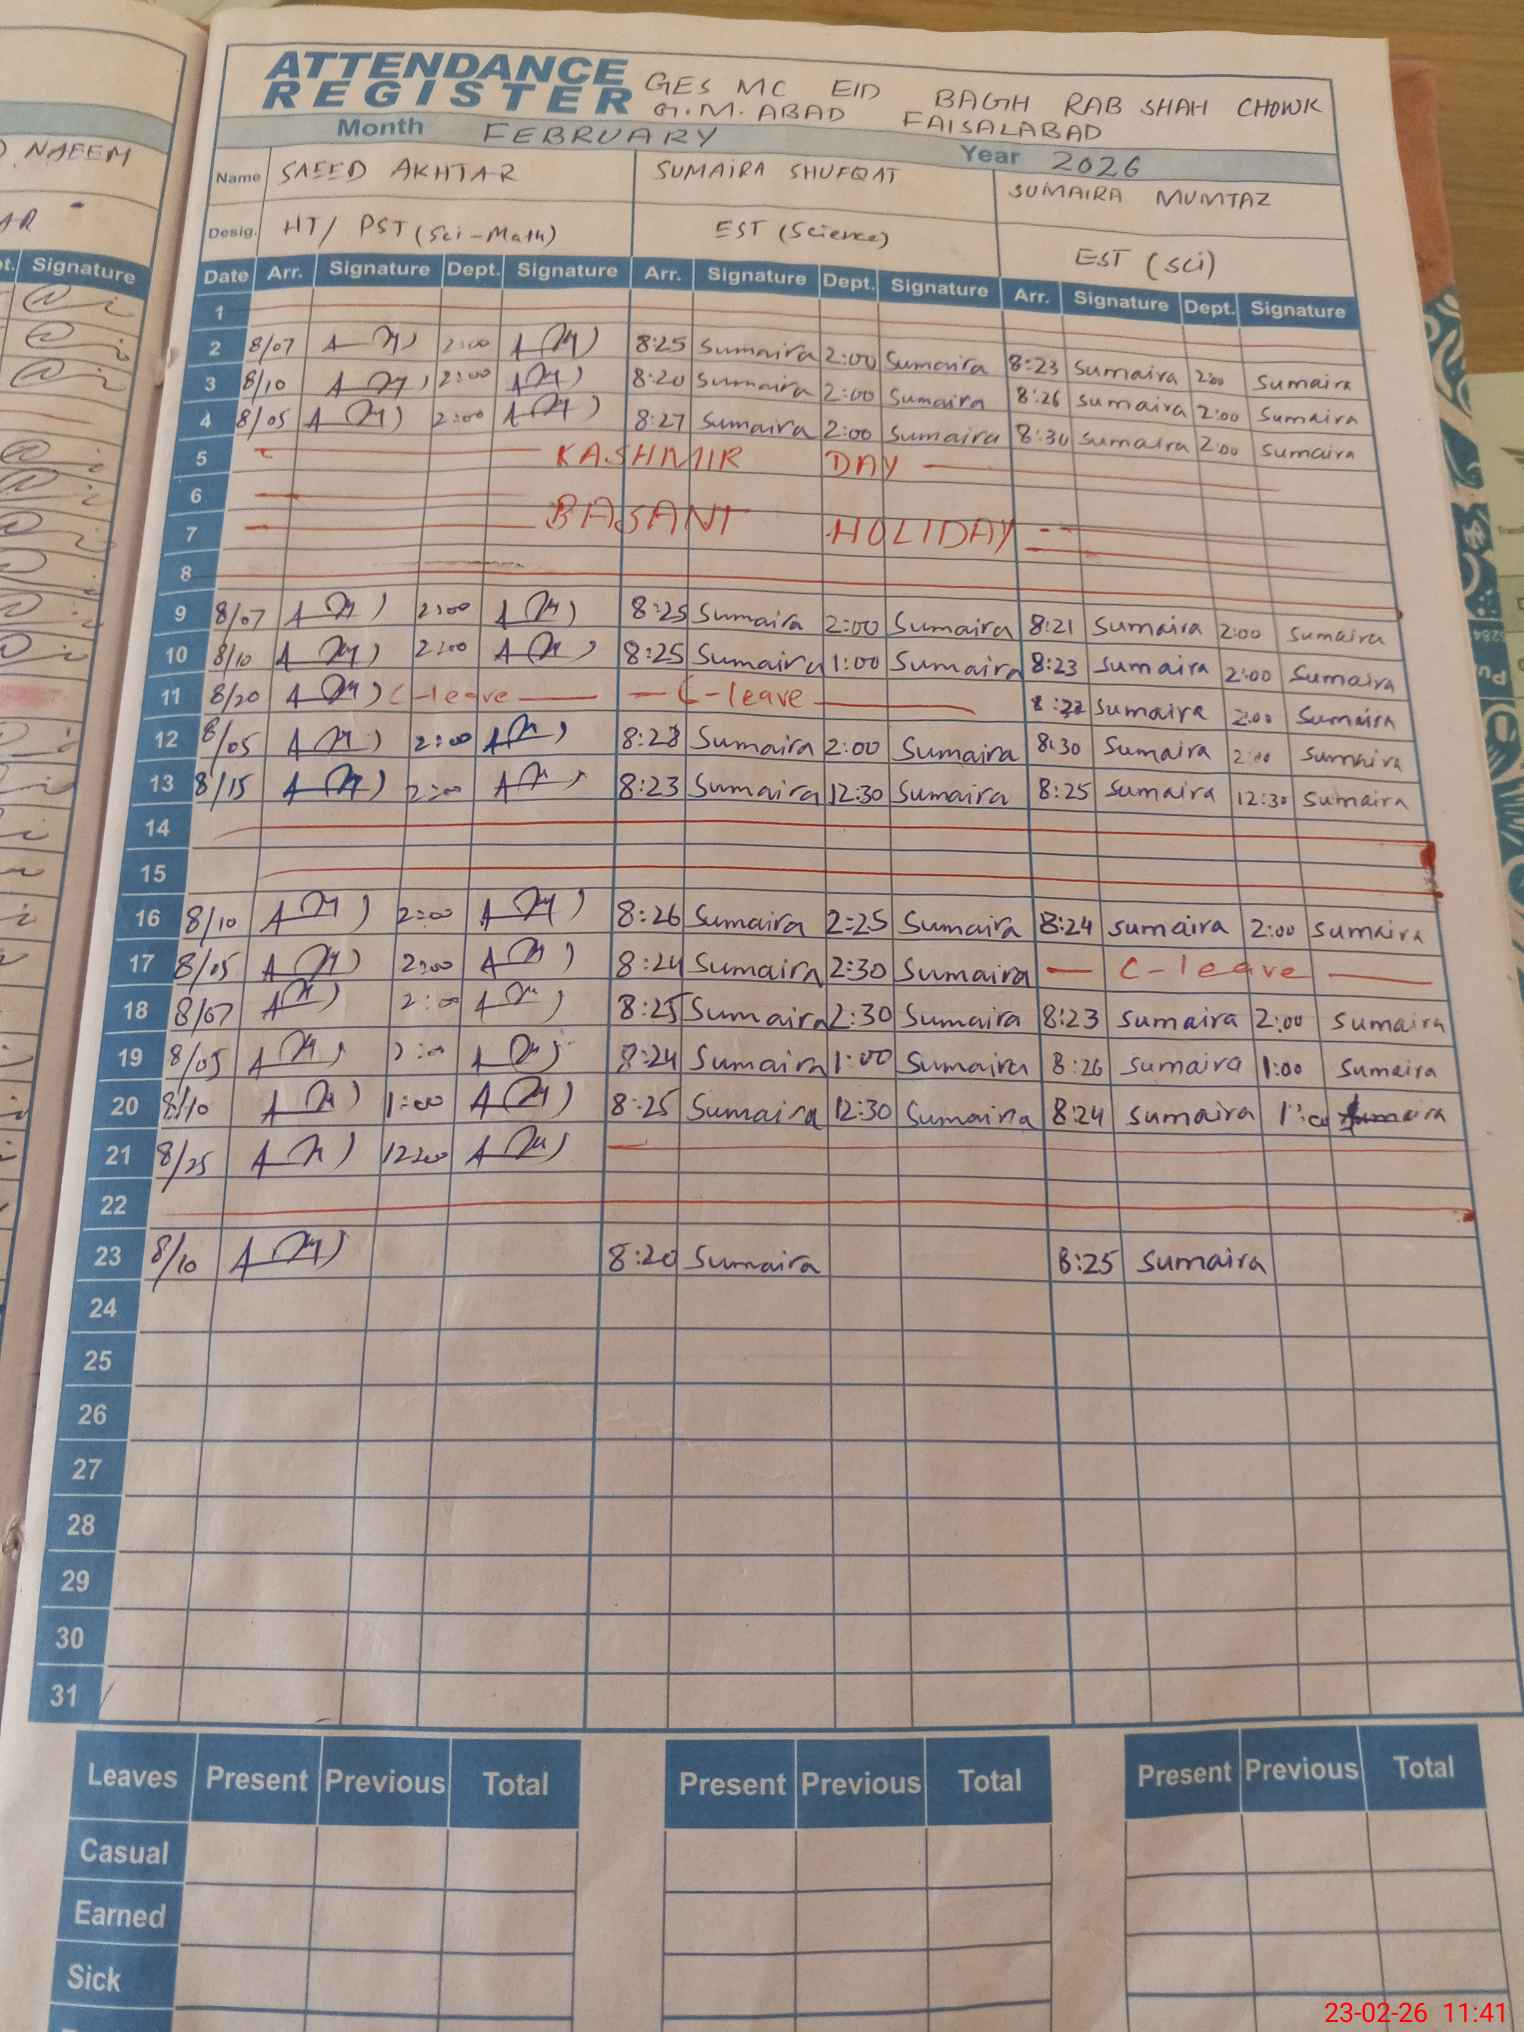 ATTENDANCE REGISTER GES MC EID BAGH RAB SHAH CHOWK
G.M. ABAD FAISALABAD
Month FEBRUARY Year 2026
NAEEM
Name SAEED AKHTAR SUMAIRA SHUFQAT SUMAIRA MUMTAZ
Desig. HT/ PST (Sci-Math) EST (Science) EST (Sci)
Signature
Date Arr. Signature Dept. Signature Arr. Signature Dept. Signature Arr. Signature Dept. Signature
1
2 8/07 2:00 8:25 Sumaira 2:00 Sumaira 8:23 Sumaira 2:00 Sumaira
3 8/10 2:00 8:20 Sumaira 2:00 Sumaira 8:26 Sumaira 2:00 Sumaira
4 8/05 2:00 8:27 Sumaira 2:00 Sumaira 8:30 Sumaira 2:00 Sumaira
5 KASHMIR DAY
6
7 BASANT HOLIDAY
8
9 8/07 2:00 8:25 Sumaira 2:00 Sumaira 8:21 Sumaira 2:00 Sumaira
10 8/10 2:00 8:25 Sumaira 1:00 Sumaira 8:23 Sumaira 2:00 Sumaira
11 8/20 C-leave C-leave Sumaira 2:00 Sumaira
12 8/05 2:00 8:28 Sumaira 2:00 Sumaira 8:30 Sumaira 2:00 Sumaira
13 8/15 2:00 8:23 Sumaira 12:30 Sumaira 8:25 Sumaira 12:30 Sumaira
14
15
16 8/10 2:00 8:26 Sumaira 2:25 Sumaira 8:24 Sumaira 2:00 Sumaira
17 8/05 2:00 8:24 Sumaira 2:30 Sumaira C-leave
18 8/07 2:00 8:25 Sumaira 2:30 Sumaira 8:23 Sumaira 2:00 Sumaira
19 8/05 8:24 Sumaira 1:00 Sumaira 8:26 Sumaira 1:00 Sumaira
20 8/10 1:00 8:25 Sumaira 12:30 Sumaira 8:24 Sumaira Sumaira
21 8/25 12:00
22
23 8/10 8:20 Sumaira 8:25 Sumaira
24
25
26
27
28
29
30
31
Leaves Present Previous Total Present Previous Total Present Previous Total
Casual
Earned
Sick
23-02-26 11:41